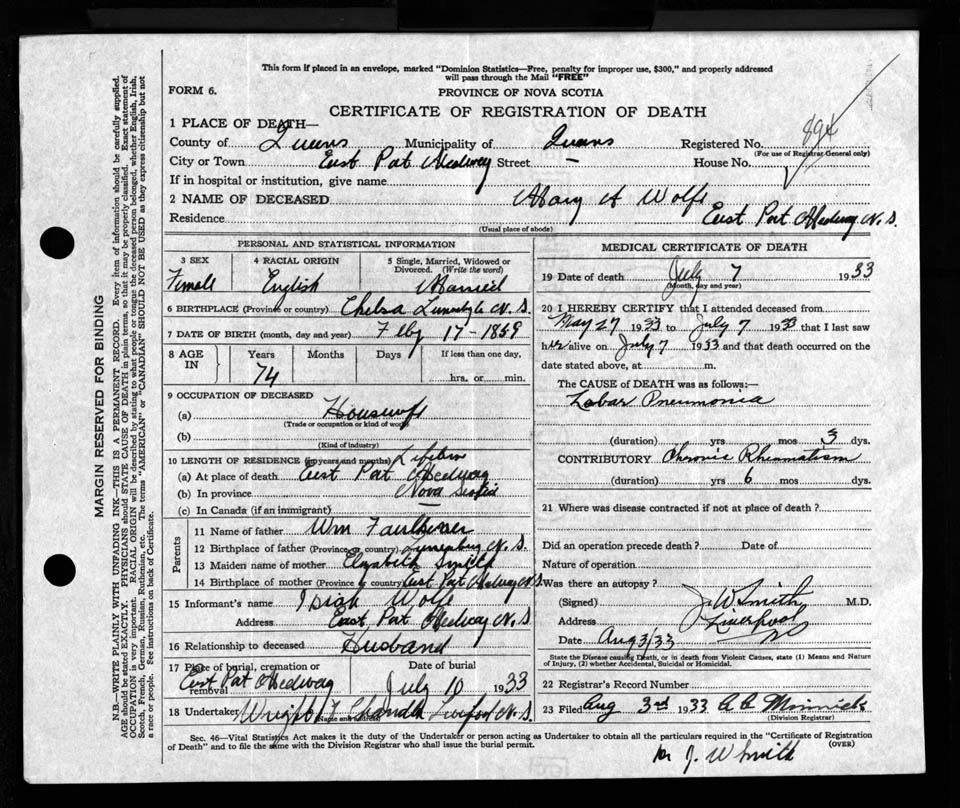 This form if placed in an envelope, marked "Dominion Statistics—Free, penalty for improper use, $300," and properly addressed
will pass through the Mail "FREE"
FORM 6.
PROVINCE OF NOVA SCOTIA
CERTIFICATE OF REGISTRATION OF DEATH
1 PLACE OF DEATH—
County of Queens Municipality of Queens Registered No.
(For use of Registrar General only)
City or Town East Port Medway Street — House No.
If in hospital or institution, give name
2 NAME OF DECEASED Mary A Wolfe
Residence East Port Medway N.S.
(Usual place of abode)
PERSONAL AND STATISTICAL INFORMATION
3 SEX 4 RACIAL ORIGIN 5 Single, Married, Widowed or
Divorced. (Write the word)
Female English Married
6 BIRTHPLACE (Province or country) Chelsa N.S.
7 DATE OF BIRTH (month, day and year) 17-1859
8 AGE IN Years Months Days If less than one day,
74 hrs. or min.
9 OCCUPATION OF DECEASED
(a) Housewife
(Trade or occupation or kind of work)
(b)
(Kind of industry)
10 LENGTH OF RESIDENCE (in years and months) Lifetime
(a) At place of death East Port Medway
(b) In province Nova Scotia
(c) In Canada (if an immigrant)
Parents
11 Name of father Wm
12 Birthplace of father (Province or country) Lunenburg N.S.
13 Maiden name of mother Elizabeth Smith
14 Birthplace of mother (Province or country) East Port Medway N.S.
15 Informant's name Wolfe
Address East Port Medway N.S.
16 Relationship to deceased Husband
17 Place of burial, cremation or removal Date of burial
East Port Medway July 10 1933
18 Undertaker Wright Liverpool N.S.
(Name and address)
MEDICAL CERTIFICATE OF DEATH
19 Date of death July 7 1933
(Month, day and year)
20 I HEREBY CERTIFY that I attended deceased from
May 27 1933 to July 7 1933 that I last saw
her alive on July 7 1933 and that death occurred on the
date stated above, at m.
The CAUSE of DEATH was as follows:—
Lobar Pneumonia
(duration) yrs mos 3 dys.
CONTRIBUTORY Chronic Rheumatism
(duration) yrs 6 mos dys.
21 Where was disease contracted if not at place of death?
Did an operation precede death? Date of
Nature of operation
Was there an autopsy?
(Signed) J. W Smith M.D.
Address Liverpool
Date Aug 3/33
State the Disease causing Death, or in death from Violent Causes, state (1) Means and Nature
of Injury, (2) whether Accidental, Suicidal or Homicidal.
22 Registrar's Record Number
23 Filed Aug 3rd 1933
(Division Registrar)
Sec. 46—Vital Statistics Act makes it the duty of the Undertaker or person acting as Undertaker to obtain all the particulars required in the "Certificate of Registration
of Death" and to file the same with the Division Registrar who shall issue the burial permit.
(OVER)
J. W Smith
MARGIN RESERVED FOR BINDING
N.B.—WRITE PLAINLY WITH UNFADING INK—THIS IS A PERMANENT RECORD. Every item of information should be carefully supplied.
AGE should be stated EXACTLY. PHYSICIANS should STATE CAUSE OF DEATH in plain terms, so that it may be properly classified. Exact statement of
OCCUPATION is very important. RACIAL ORIGIN will be described by stating to what people or tongue the deceased person belonged, whether English, Irish,
Scotch, French, German, Russian, Ruthenian, etc. The terms "AMERICAN" or "CANADIAN" SHOULD NOT BE USED as they express citizenship but not
a race or people. See instructions on back of Certificate.